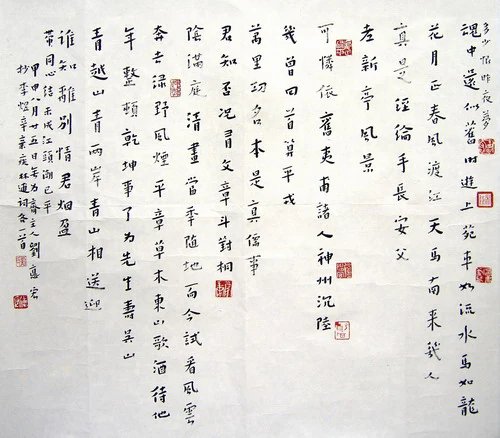 多少恨昨夜夢
魂中還似舊時遊上苑車如流水馬如龍
花月正春風渡江天馬南來幾人
真是經綸手長安父
老新亭風景
可憐依舊夷甫諸人神州沉陸
幾曾回首算平戎
萬里功名本是真儒事
君知否況有文章斗對桐
陰滿庭清晝當年隨地而今試看風雲
奔走綠野風煙平章草木東山歌酒待他
年整頓乾坤事了為先生壽吳山
青越山青兩岸青山相送迎
誰知離別情君淚盈
帶同心結未成江頭潮已平
甲申八月廿五日為齋主人劉宏
抄李煜辛棄疾林逋詞各一首